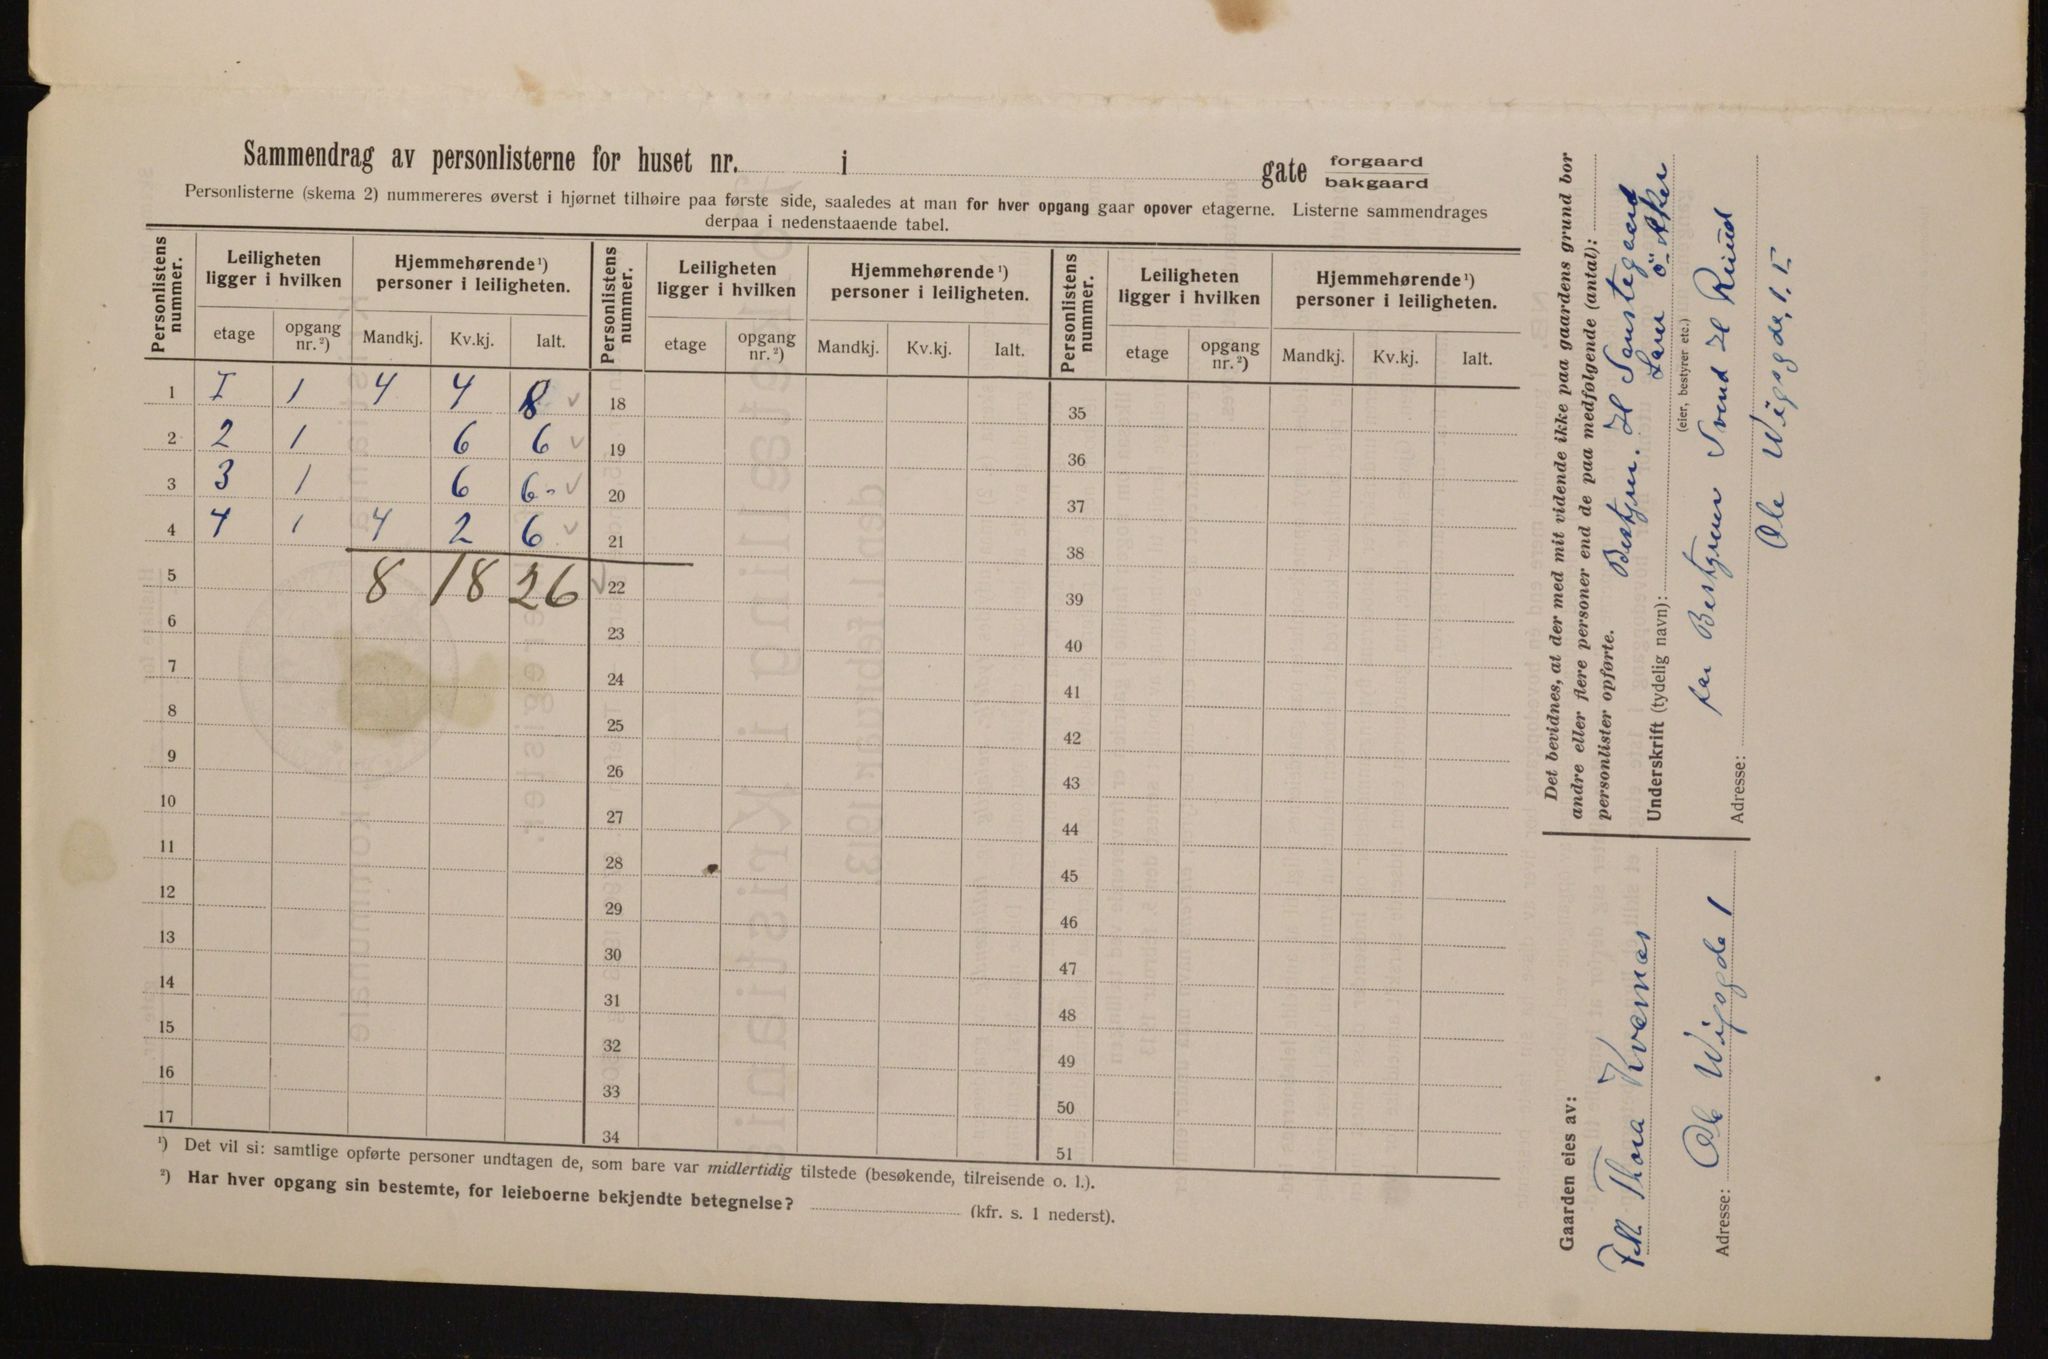 Sammendrag av personlisterne for huset nr. i gate forgaard
bakgaard
Personlisterne (skema 2) nummereres øverst i hjørnet tilhøire paa første side, saaledes at man for hver opgang gaar opover etagerne. Listerne sammendrages
derpaa i nedenstaaende tabel.
Personlistens nummer. Leiligheten ligger i hvilken Hjemmehørende ¹) personer i leiligheten. Personlistens nummer. Leiligheten ligger i hvilken Hjemmehørende ¹) personer i leiligheten. Personlistens nummer. Leiligheten ligger i hvilken Hjemmehørende ¹) personer i leiligheten.
etage opgang nr. ²) Mandkj. Kv.kj. Ialt. etage opgang nr. ²) Mandkj. Kv.kj. Ialt. etage opgang nr. ²) Mandkj. Kv.kj. Ialt.
1 I 1 4 4 8 18 35
2 2 1 6 6 19 36
3 3 1 6 6 20 37
4 4 1 4 2 6 21 38
5 8 18 26 22 39
6 23 40
7 24 41
8 25 42
9 26 43
10 27 44
11 28 45
12 29 46
13 30 47
14 31 48
15 32 49
16 33 50
17 34 51
¹) Det vil si: samtlige opførte personer undtagen de, som bare var midlertidig tilstede (besøkende, tilreisende o. l.).
²) Har hver opgang sin bestemte, for leieboerne bekjendte betegnelse? (kfr. s. 1 nederst).
Det bevidnes, at der med mit vidende ikke paa gaardens grund bor
andre eller flere personer end de paa medfølgende (antal):
personlister opførte.
Underskrift (tydelig navn):
(eier, bestyrer etc.)
Svend H Ruud
Adresse: Ole Wigsgde, 1. I
Gaarden eies av:
Thora Kvernæs
Adresse: Ole Wigsgde 1